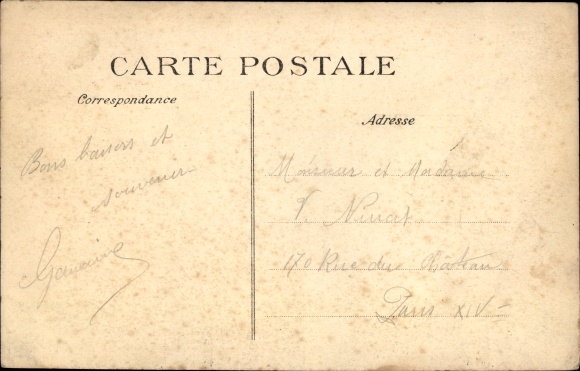 CARTE POSTALE
Correspondance
Adresse
Bons baisers et
souvenir
Monsieur et Madame
170 Rue du Château
Paris XIV